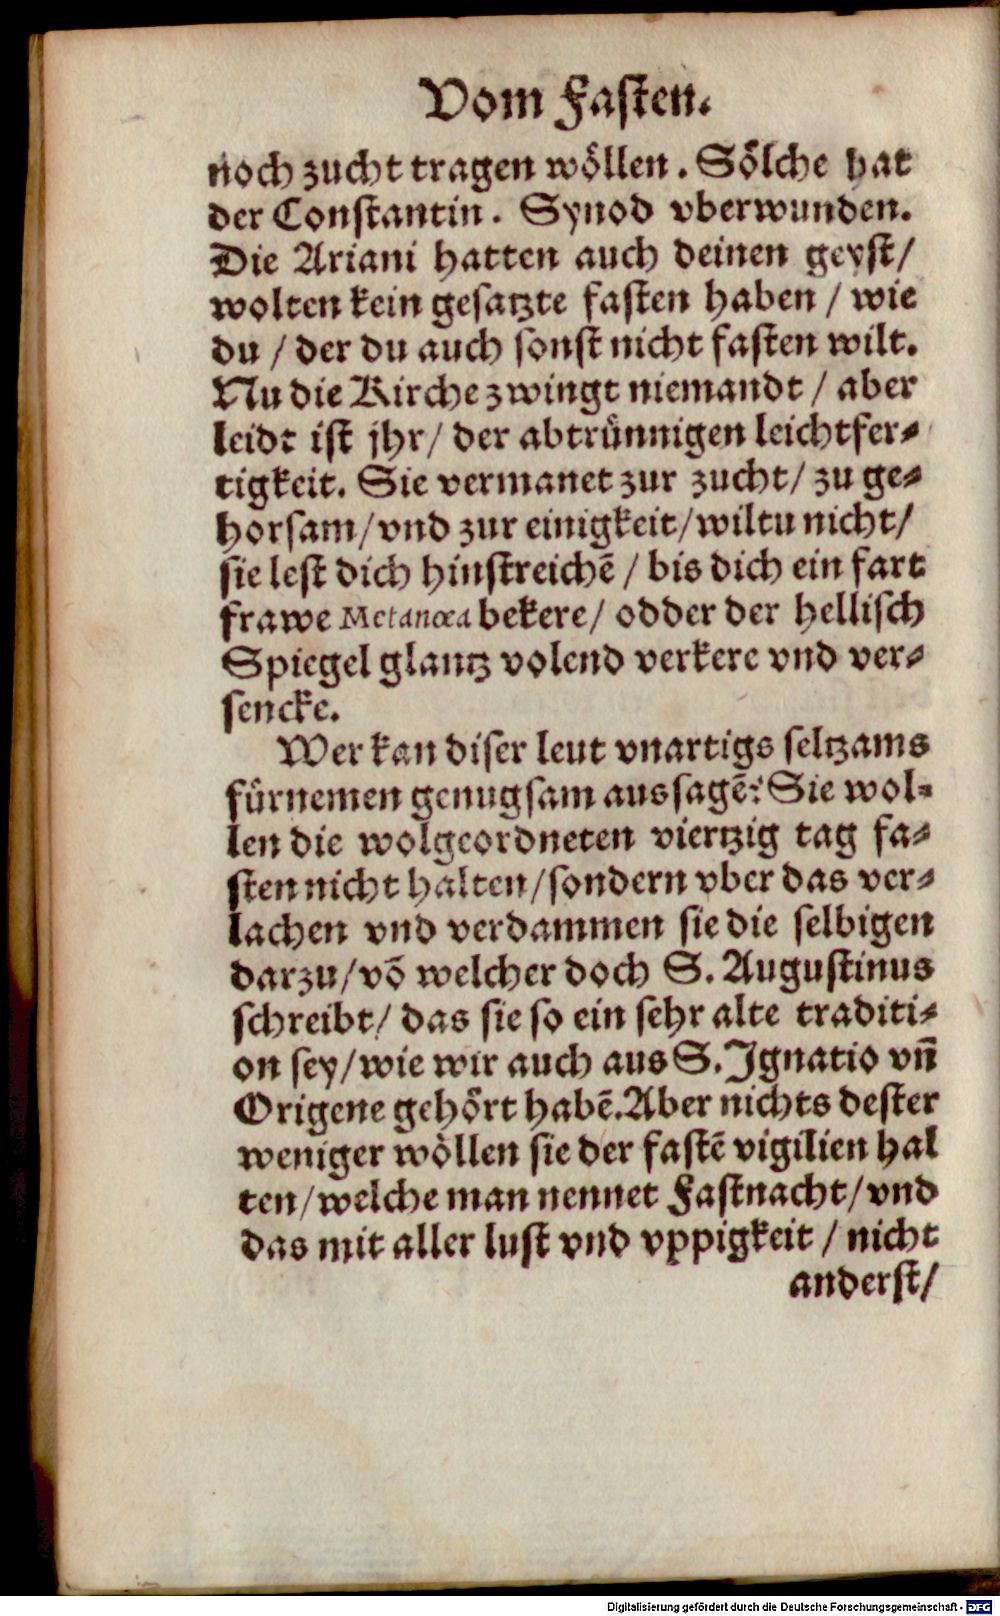 Vom Fasten.
noch zucht tragen wöllen. Sölche hat
der Constantin. Synod vberwunden.
Die Ariani hatten auch deinen geyst/
wolten kein gesatzte fasten haben / wie
du / der du auch sonst nicht fasten wilt.
Nu die Kirche zwingt niemandt / aber
leidt ist jhr/ der abtrünnigen leichtfer⸗
tigkeit. Sie vermanet zur zucht/ zu ge⸗
horsam/vnd zur einigkeit/wiltu nicht/
sie lest dich hinstreichẽ / bis dich ein fart
frawe Metanœa bekere/ odder der hellisch
Spiegel glantz volend verkere vnd ver⸗
sencke.
Wer kan diser leut vnartigs seltzams
fürnemen genugsam aussagẽ? Sie wol⸗
len die wolgeordneten viertzig tag fa⸗
sten nicht halten/sondern vber das ver⸗
lachen vnd verdammen sie die selbigen
darzu/võ welcher doch S. Augustinus
schreibt/ das sie so ein sehr alte traditi⸗
on sey/wie wir auch aus S. Ignatio vñ
Origene gehört habẽ. Aber nichts dester
weniger wöllen sie der fastẽ vigilien hal
ten/welche man nennet Fastnacht/vnd
das mit aller lust vnd vppigkeit / nicht
anderst/
Digitalisierung gefördert durch die Deutsche Forschungsgemeinschaft - DFG